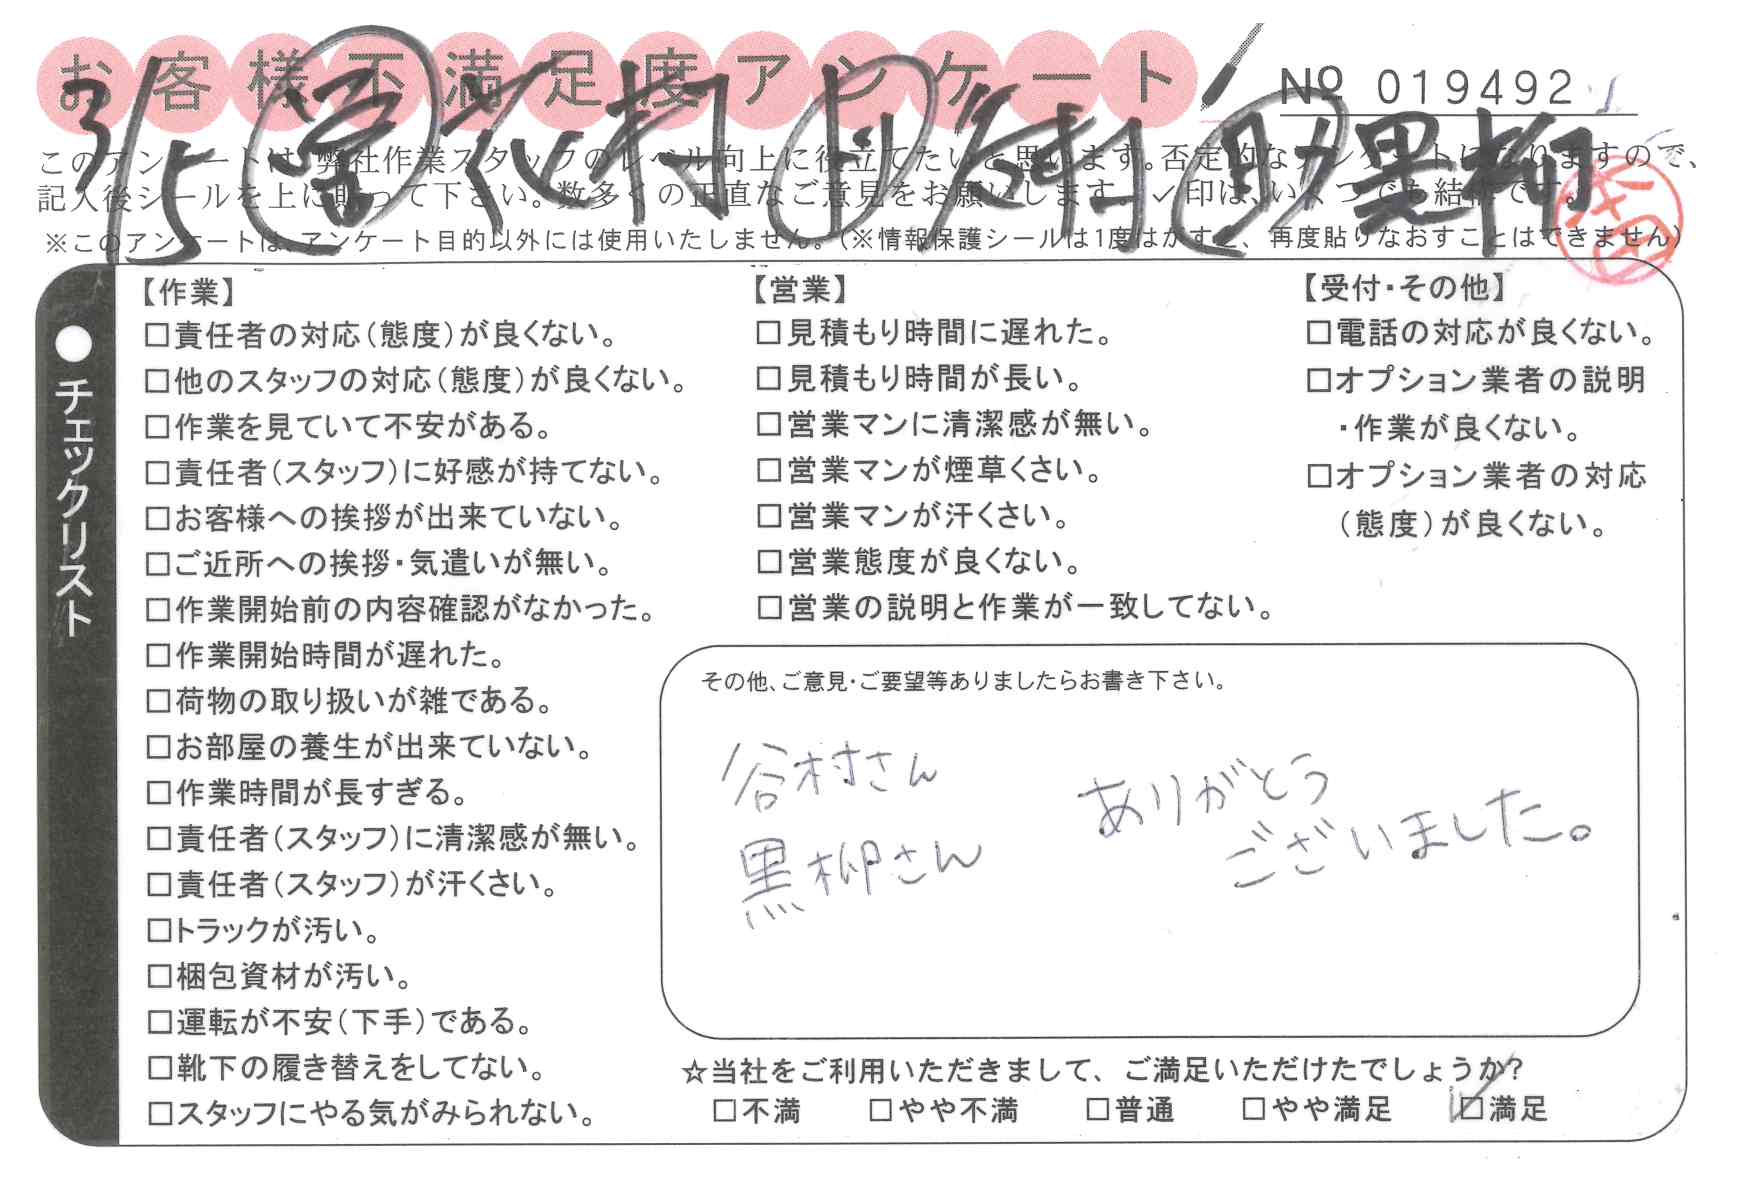 お客様不満足度アンケート
№ 019492
3/5 営 志村 リ 谷村 助 黒柳
このアンケートは、弊社作業スタッフのレベル向上に役立てたいと思います。否定的なアンケートになりますので、
記入後シールを上に貼って下さい。数多くの正直なご意見をお願いします。✓印は、いくつでも結構です。
※このアンケートは、アンケート目的以外には使用いたしません。（※情報保護シールは1度はがすと、再度貼りなおすことはできません）
●チェックリスト
【作業】
□責任者の対応（態度）が良くない。
□他のスタッフの対応（態度）が良くない。
□作業を見ていて不安がある。
□責任者（スタッフ）に好感が持てない。
□お客様への挨拶が出来ていない。
□ご近所への挨拶・気遣いが無い。
□作業開始前の内容確認がなかった。
□作業開始時間が遅れた。
□荷物の取り扱いが雑である。
□お部屋の養生が出来ていない。
□作業時間が長すぎる。
□責任者（スタッフ）に清潔感が無い。
□責任者（スタッフ）が汗くさい。
□トラックが汚い。
□梱包資材が汚い。
□運転が不安（下手）である。
□靴下の履き替えをしてない。
□スタッフにやる気がみられない。
【営業】
□見積もり時間に遅れた。
□見積もり時間が長い。
□営業マンに清潔感が無い。
□営業マンが煙草くさい。
□営業マンが汗くさい。
□営業態度が良くない。
□営業の説明と作業が一致してない。
【受付・その他】
□電話の対応が良くない。
□オプション業者の説明
・作業が良くない。
□オプション業者の対応
（態度）が良くない。
その他、ご意見・ご要望等ありましたらお書き下さい。
谷村さん
黒柳さん
ありがとう
ございました。
☆当社をご利用いただきまして、ご満足いただけたでしょうか?
□不満 □やや不満 □普通 □やや満足 ☑満足